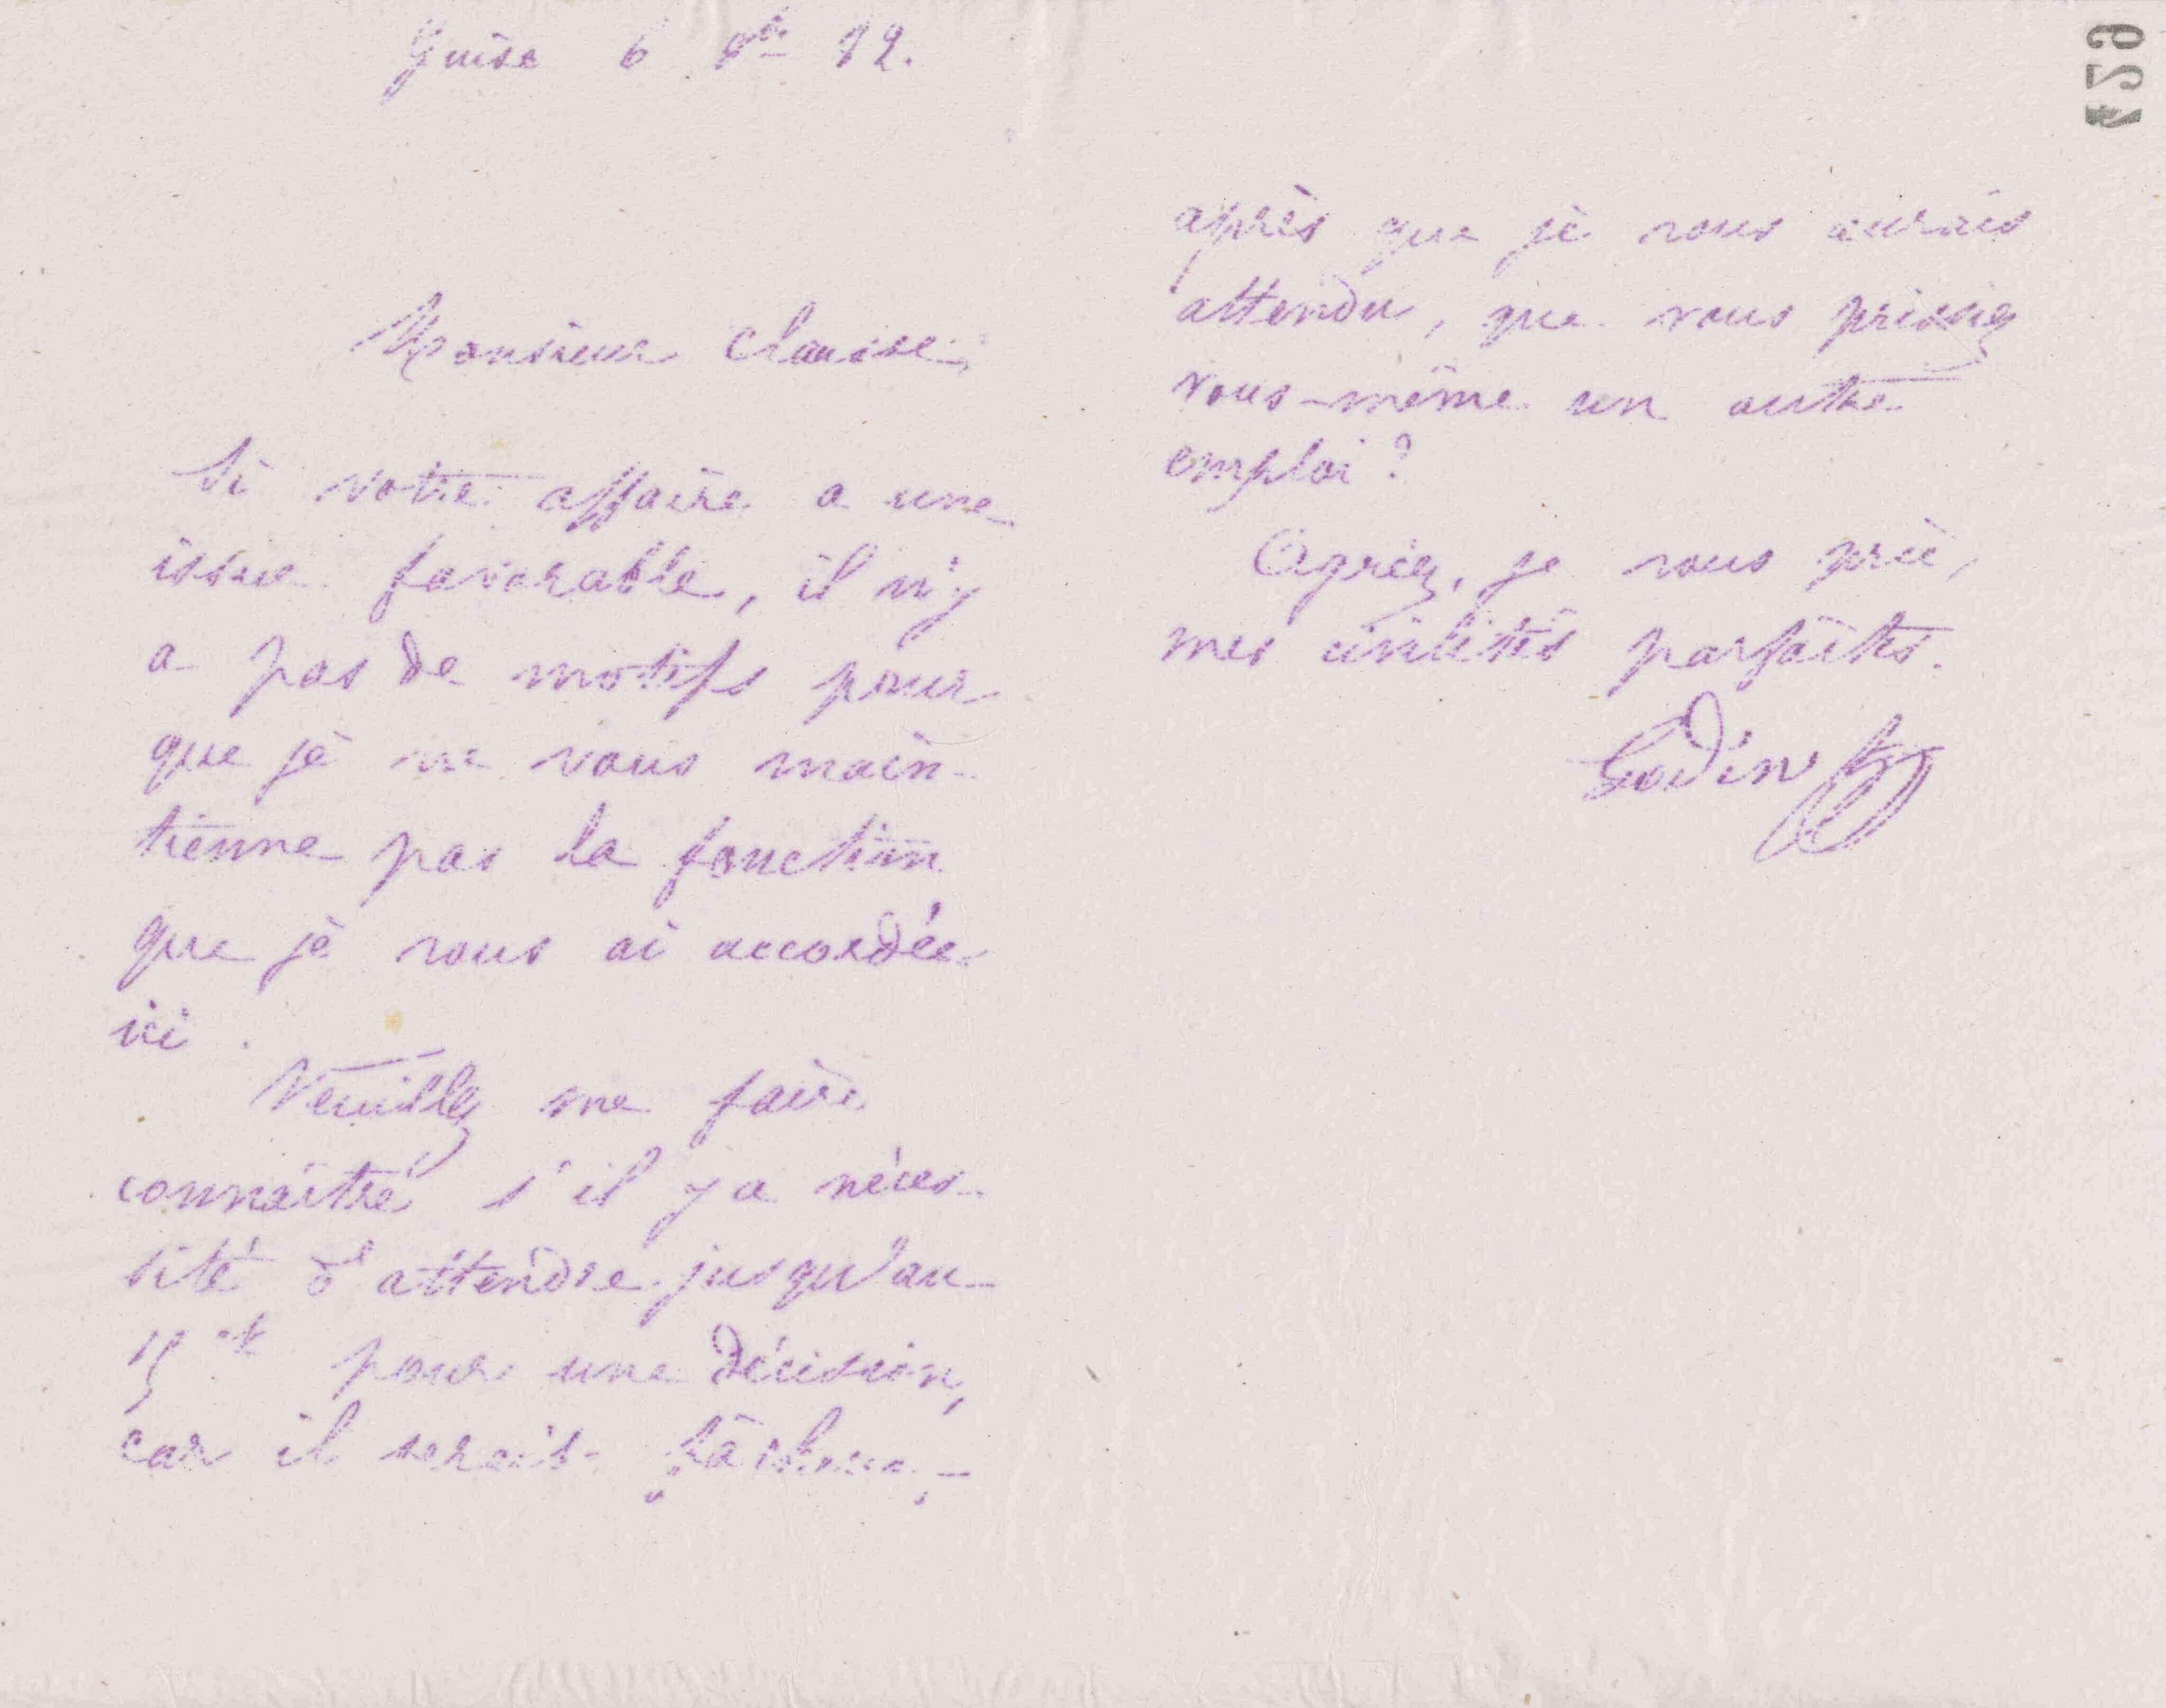 Guise 6 9bre 82.
Monsieur Clausse,
Si votre affaire a une
issue favorable, il n'y
a pas de motifs pour
que je ne vous main-
tienne pas la fonction
que je vous ai accordée
ici.
Veuillez me faire
connaître s'il y a néces-
sité d'attendre jusqu'au
15 pour une décision,
car il serait fâcheux,
après que je vous aurais
attendu, que vous prissiez
vous-même un autre
emploi?
Agréez, je vous prie,
mes civilités parfaites.
Godin